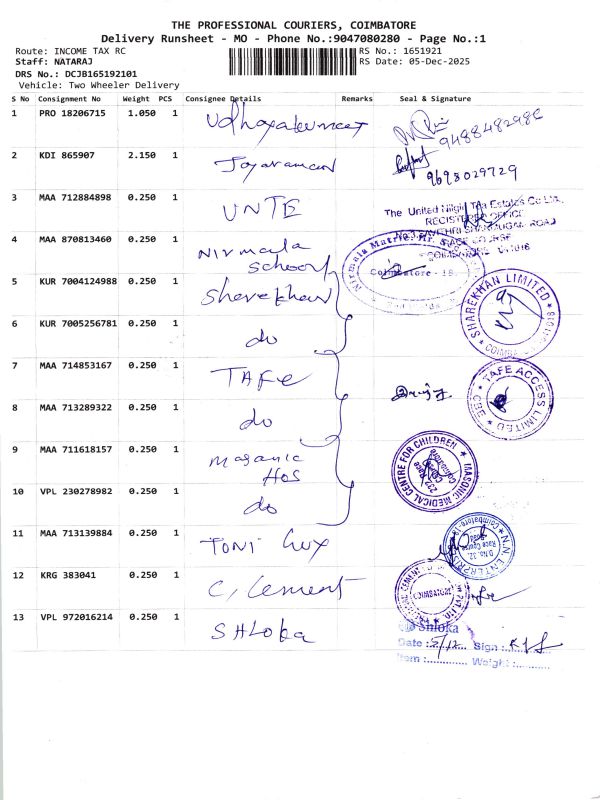 THE PROFESSIONAL COURIERS, COIMBATORE
Delivery Runsheet - MO - Phone No.:9047080280 - Page No.:1
Route: INCOME TAX RC
RS No.: 1651921
Staff: NATARAJ
RS Date: 05-Dec-2025
DRS No.: DCJB165192101
Vehicle: Two Wheeler Delivery
S No Consignment No Weight PCS Consignee Details Remarks Seal & Signature
1 PRO 18206715 1.050 1 Udhayakumar
2 KDI 865907 2.150 1 Jayaraman 9698029729
3 MAA 712884898 0.250 1 UNTE
The United Nilgiri Tea Estates Co Ltd.,
REGISTERED OFFICE
4 MAA 870813460 0.250 1 Nirmala School
Coimbatore - 18
5 KUR 7004124988 0.250 1 Sharekhan
SHAREKHAN LIMITED
6 KUR 7005256781 0.250 1 do
7 MAA 714853167 0.250 1 TAFE
TAFE ACCESS LIMITED
8 MAA 713289322 0.250 1 do
9 MAA 711618157 0.250 1 Masanic Hos
MASONIC MEDICAL CENTRE FOR CHILDREN
10 VPL 230278982 0.250 1 do
11 MAA 713139884 0.250 1 TONI
N.N. ENTERPRISES
12 KRG 383041 0.250 1 C, Cement
COIMBATORE
13 VPL 972016214 0.250 1 SHLOKA
Shloka
Date : 5/12 Sign :
Item : Weight :